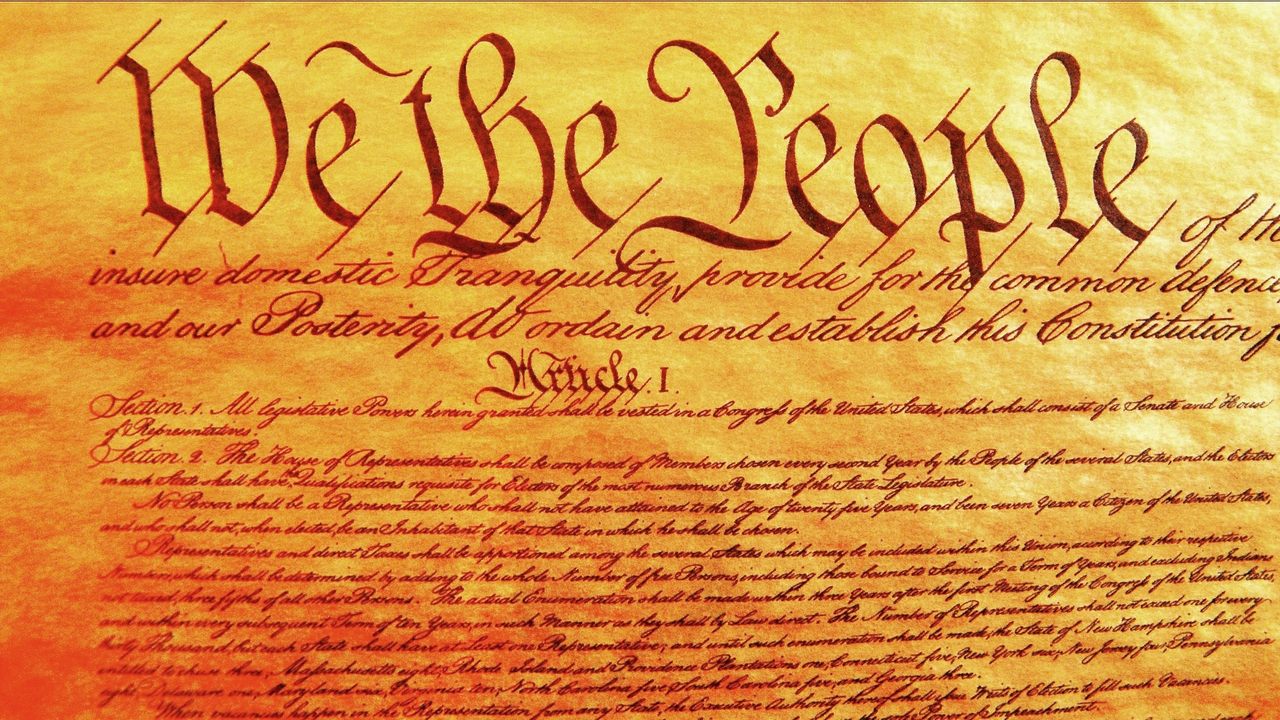 We the People of th
insure domestic Tranquility, provide for the common defence,
and our Posterity, do ordain and establish this Constitution f
Article. I.
Section. 1. All legislative Powers herein granted shall be vested in a Congress of the United States, which shall consist of a Senate and House
of Representatives.
Section. 2. The House of Representatives shall be composed of Members chosen every second Year by the People of the several States, and the Electors
in each State shall have Qualifications requisite for Electors of the most numerous Branch of the State Legislature.
No Person shall be a Representative who shall not have attained to the Age of twenty five Years, and been seven Years a Citizen of the United States,
and who shall not, when elected, be an Inhabitant of that State in which he shall be chosen.
Representatives and direct Taxes shall be apportioned among the several States which may be included within this Union, according to their respective
Numbers, which shall be determined by adding to the whole Number of free Persons, including those bound to Service for a Term of Years, and excluding Indians
not taxed, three fifths of all other Persons. The actual Enumeration shall be made within three Years after the first Meeting of the Congress of the United States,
and within every subsequent Term of ten Years, in such Manner as they shall by Law direct. The Number of Representatives shall not exceed one for every
thirty Thousand, but each State shall have at Least one Representative; and until such enumeration shall be made, the State of New Hampshire shall be
entitled to chuse three, Massachusetts eight, Rhode Island and Providence Plantations one, Connecticut five, New York six, New Jersey four, Pennsylvania
eight, Delaware one, Maryland six, Virginia ten, North Carolina five, South Carolina five, and Georgia three.
When vacancies happen in the Representation from any State, the Executive Authority thereof shall issue Writs of Election to fill such Vacancies.
the sole Power of Impeachment.